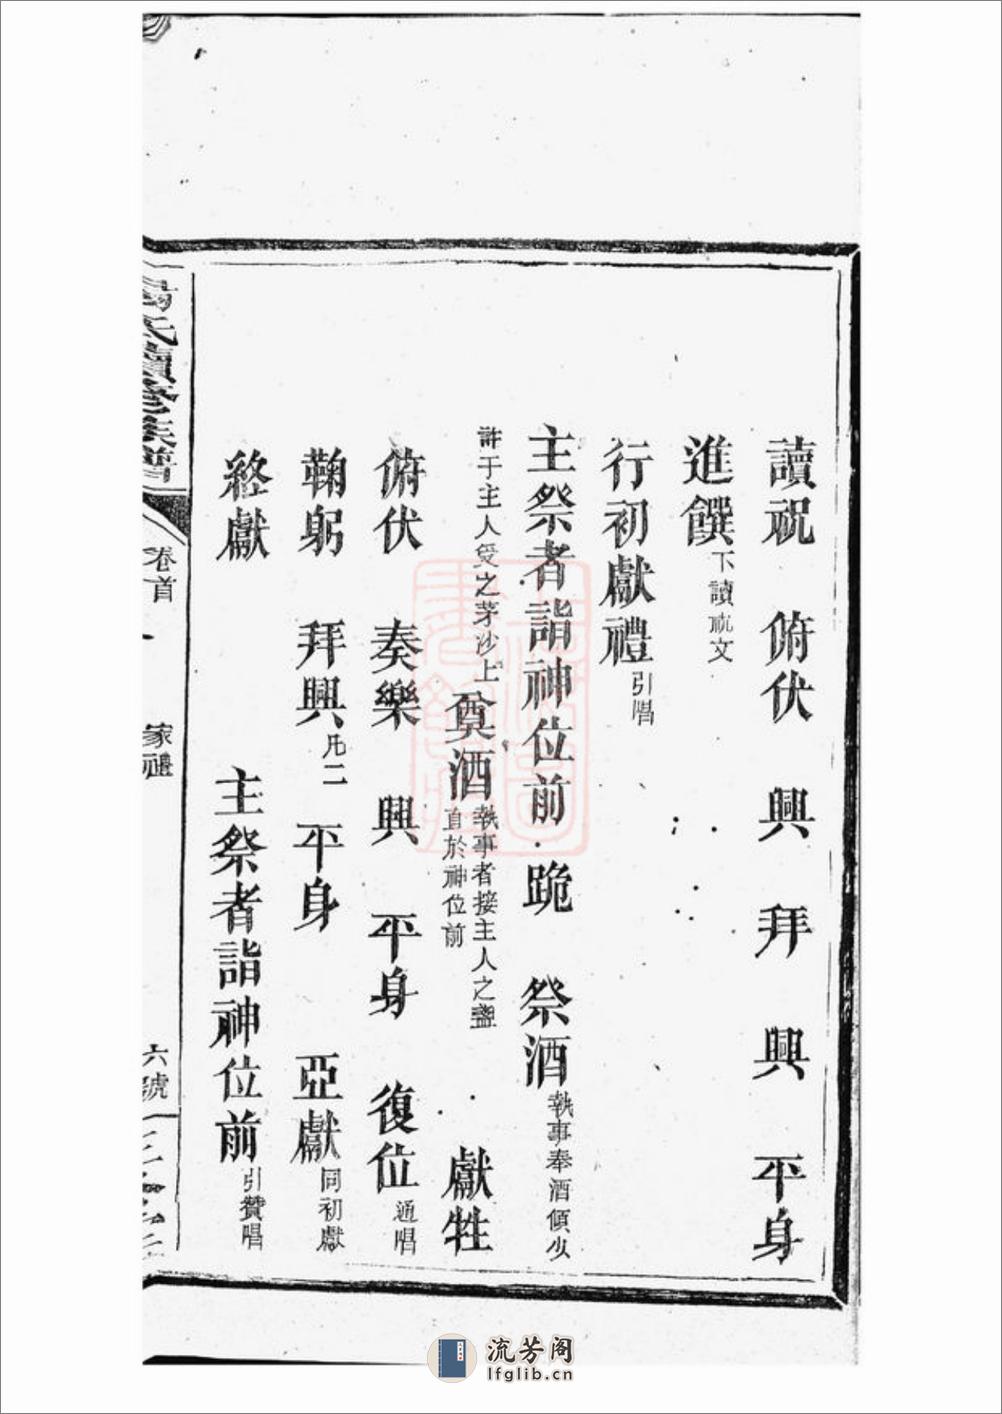 讀祝　俯伏　興　拜　興　平身
進饌下讀祝文
行初獻禮引唱
主祭者詣神位前　跪　祭酒執事奉酒傾少
許于主人受之茅沙上　奠酒執事者接主人之盞直於神位前　獻牲
俯伏　奏樂　興　平身　復位通唱
鞠躬　拜興凡二　平身　亞獻同初獻
終獻　主祭者詣神位前引贊唱
氏續修族譜　卷首　家禮　六號
流芳阁
lfglib.cn